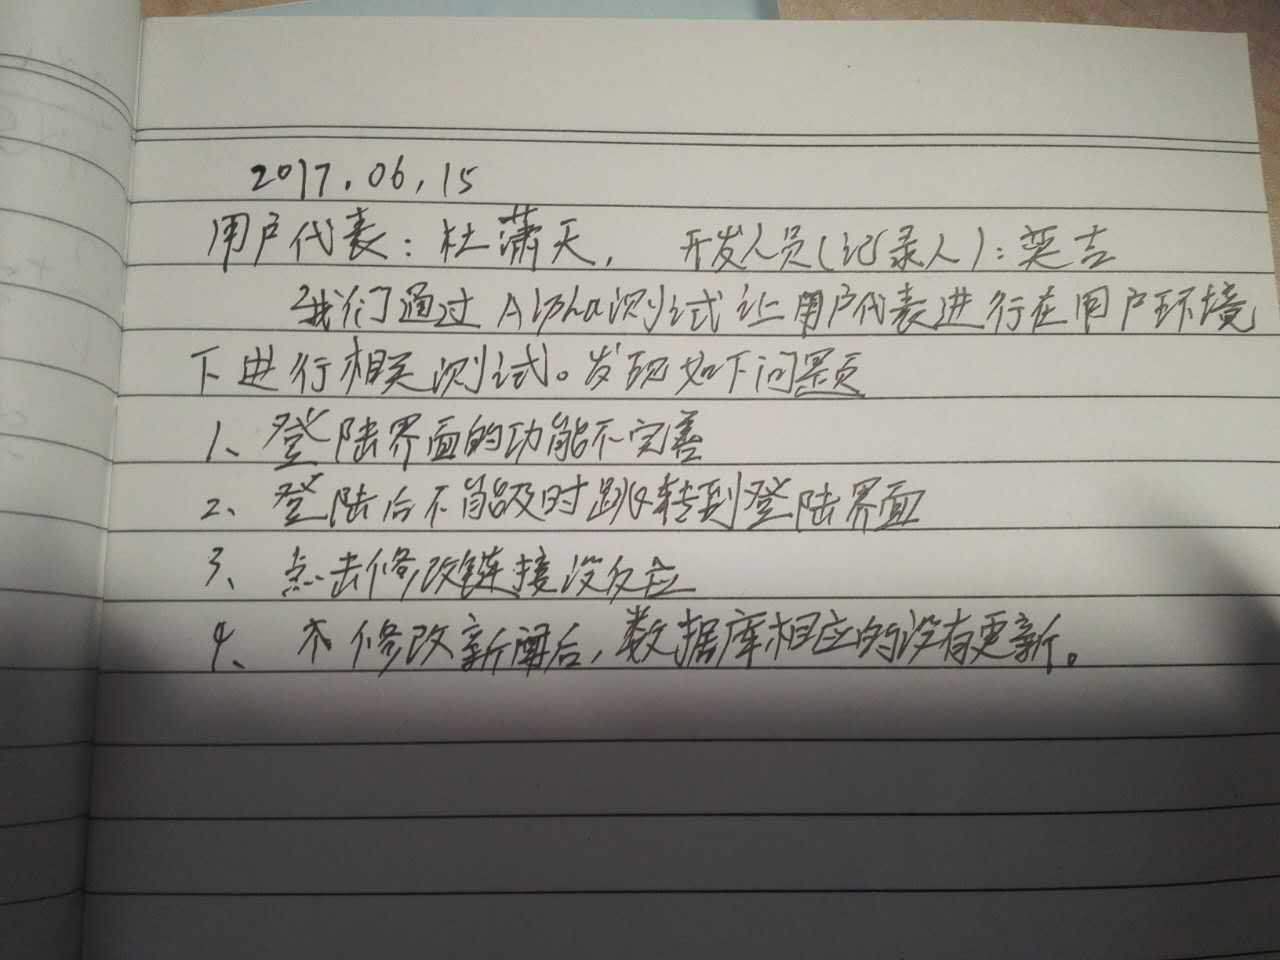 2017.06.15
用户代表：杜潇天， 开发人员(记录人)：英吉
我们通过Alpha测试让用户代表进行在用户环境
下进行相关测试。发现如下问题
1、登陆界面的功能不完善
2、登陆后不能及时跳转到登陆界面
3、点击修改链接没反应
4、木修改新闻后，数据库相应的没有更新。